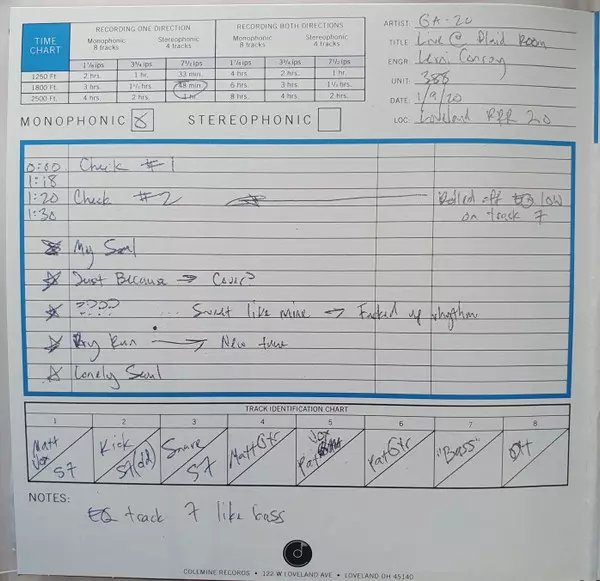 TIME CHART
RECORDING ONE DIRECTION
RECORDING BOTH DIRECTIONS
Monophonic 8 tracks
Stereophonic 4 tracks
Monophonic 8 tracks
Stereophonic 4 tracks
1⅞ ips 3¾ ips 7½ ips 1⅞ ips 3¾ ips 7½ ips
1250 Ft. 2 hrs. 1 hr. 33 min. 4 hrs. 2 hrs. 1 hr.
1800 Ft. 3 hrs. 1½ hrs. 48 min. 6 hrs. 3 hrs. 1½ hrs.
2500 Ft. 4 hrs. 2 hrs. 1 hr. 8 hrs. 4 hrs. 2 hrs.
MONOPHONIC
STEREOPHONIC
ARTIST: GA-20
TITLE: Live @ Plaid Room
ENGR:
UNIT: 388
DATE: 1/9/20
LOC: Loveland
0:00 Check #1
1:18
1:20 Check #2 Rolled off EQ low
1:30 on track 7
My Soul
Just Because → Cover?
???? ... Sweet like mine → Fucked up rhythm
Run → New tune
Lonely Soul
TRACK IDENTIFICATION CHART
1 2 3 4 5 6 7 8
Matt Vox 57
Kick 57
Snare 57
Matt Gtr
Pat Vox
Pat Gtr
"Bass"
NOTES:
EQ track 7 like bass
COLEMINE RECORDS • 122 W LOVELAND AVE • LOVELAND OH 45140